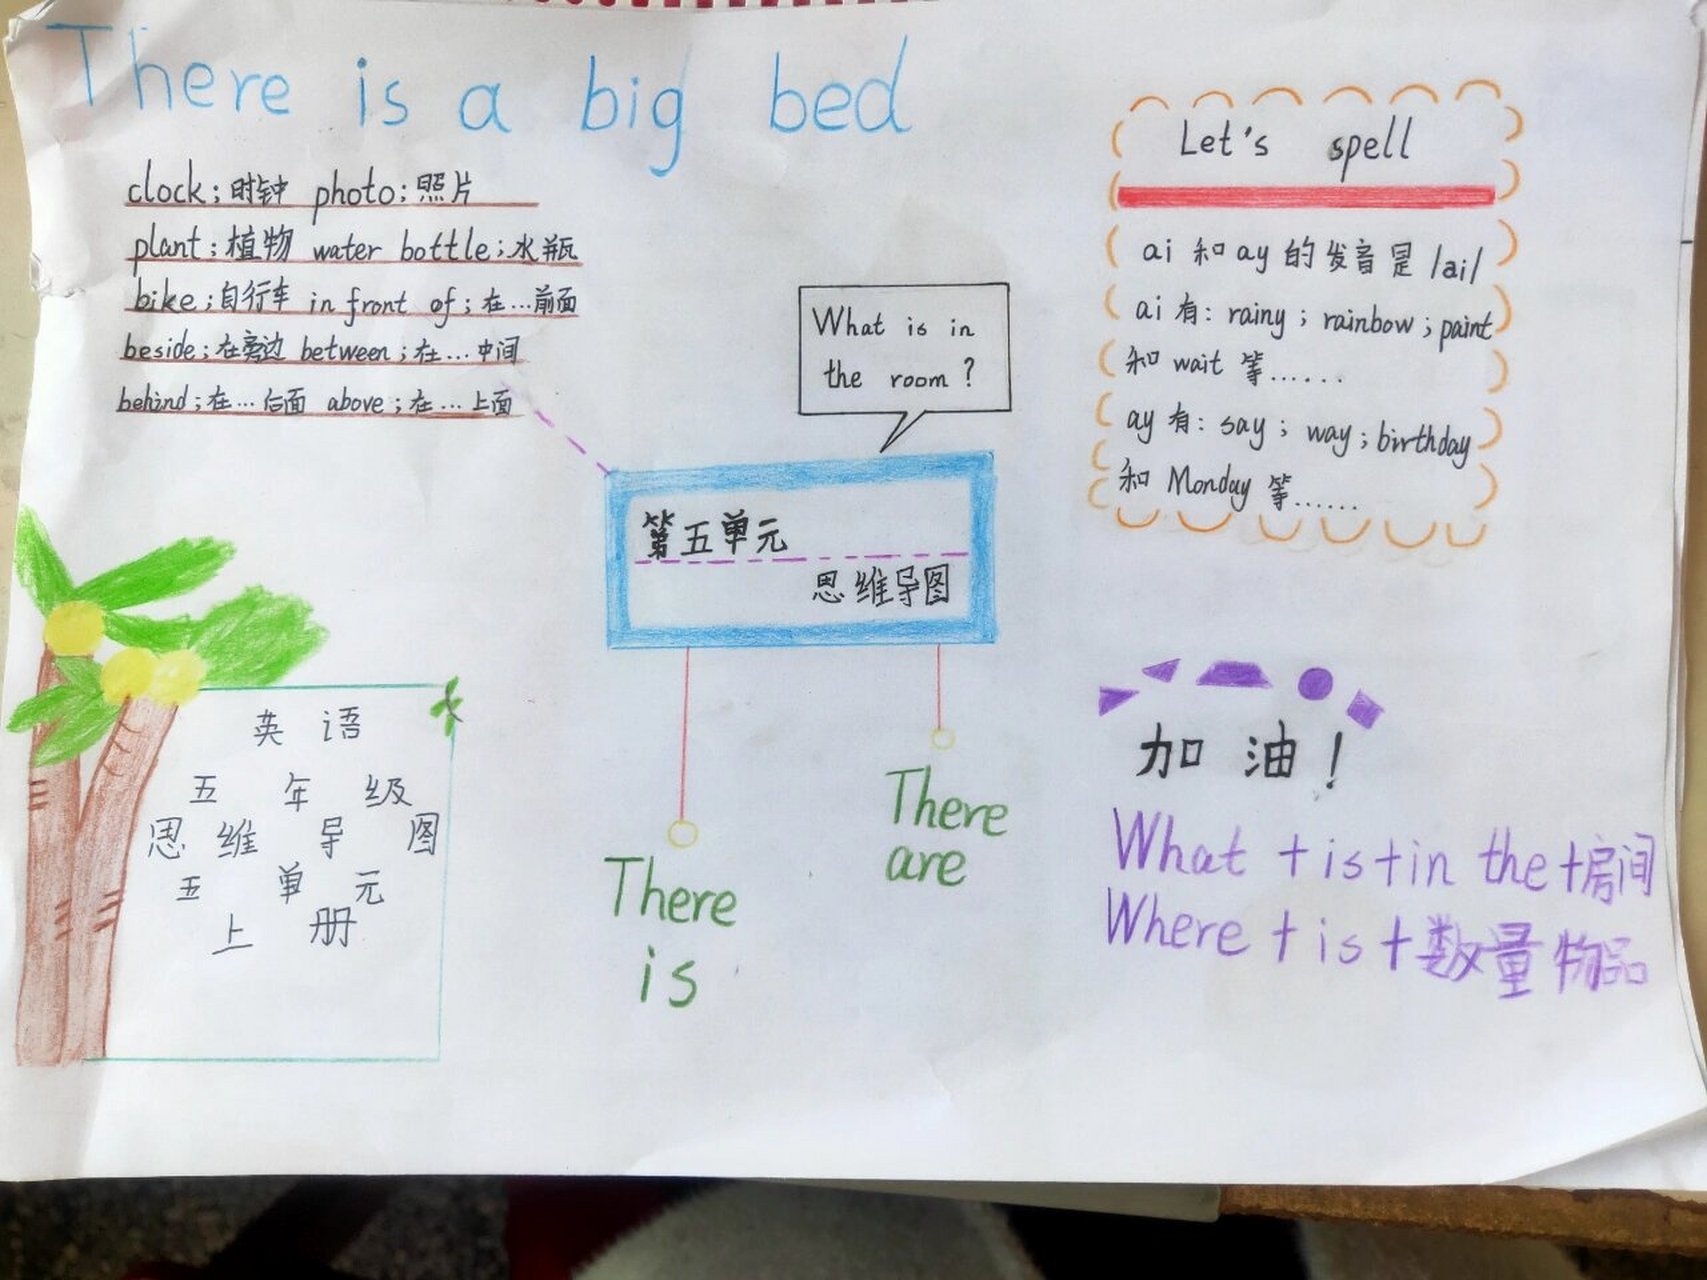 There is a big bed
clock;时钟 photo;照片
plant;植物 water bottle;水瓶
bike;自行车 in front of;在…前面
beside;在旁边 between;在…中间
behind;在…后面 above;在…上面
Let's spell
ai 和 ay 的发音是 /ai/
ai 有: rainy; rainbow; paint
和 wait 等……
ay 有: say; way; birthday
和 Monday 等……
What is in
the room?
第五单元
思维导图
There
is
There
are
英语
五年级
思维导图
五单元
上册
加油!
What + is + in the + 房间
Where + is + 数量物品